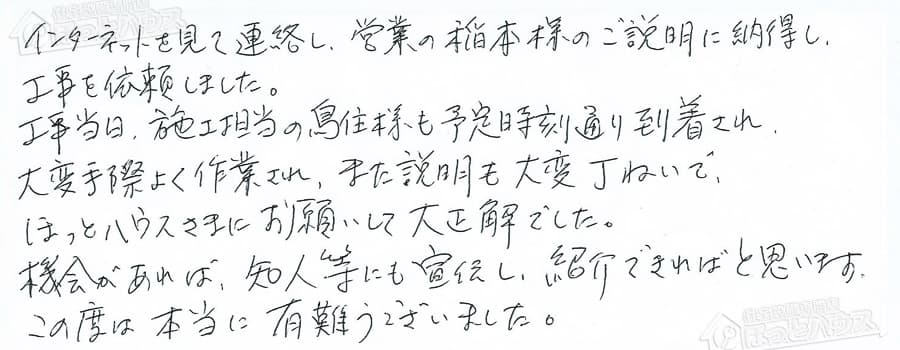 インターネットを見て連絡し、営業の稲本様のご説明に納得し、
工事を依頼しました。
工事当日、施工担当の鳥住様も予定時刻通り到着され、
大変手際よく作業され、また説明も大変丁ねいで、
ほっとハウスさまにお願いして大正解でした。
機会があれば、知人等にも宣伝し、紹介できればと思います。
この度は本当に有難うございました。
ほっとハウス